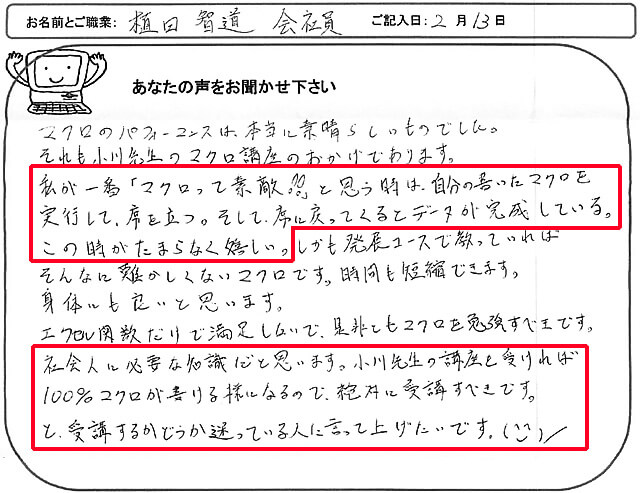 お名前とご職業: 植田 智道 会社員 ご記入日: 2月13日
あなたの声をお聞かせ下さい
マクロのパフォーマンスは、本当に素晴らしいものでした。
それも小川先生のマクロ講座のおかげであります。
私が一番「マクロって素敵!!」と思う時は、自分の書いたマクロを
実行して、席を立つ。そして、席に戻ってくるとデータが完成している。
この時がたまらなく嬉しい。しかも発展コースで教っていれば
そんなに難かしくないマクロです。時間も短縮できます。
身体にも良いと思います。
エクセル関数だけで満足しないで、是非ともマクロを勉強すべきです。
社会人に必要な知識だと思います。小川先生の講座を受ければ
100%マクロが書ける様になるので、絶対に受講すべきです。
と、受講するかどうか迷っている人に言って上げたいです。(^^)/